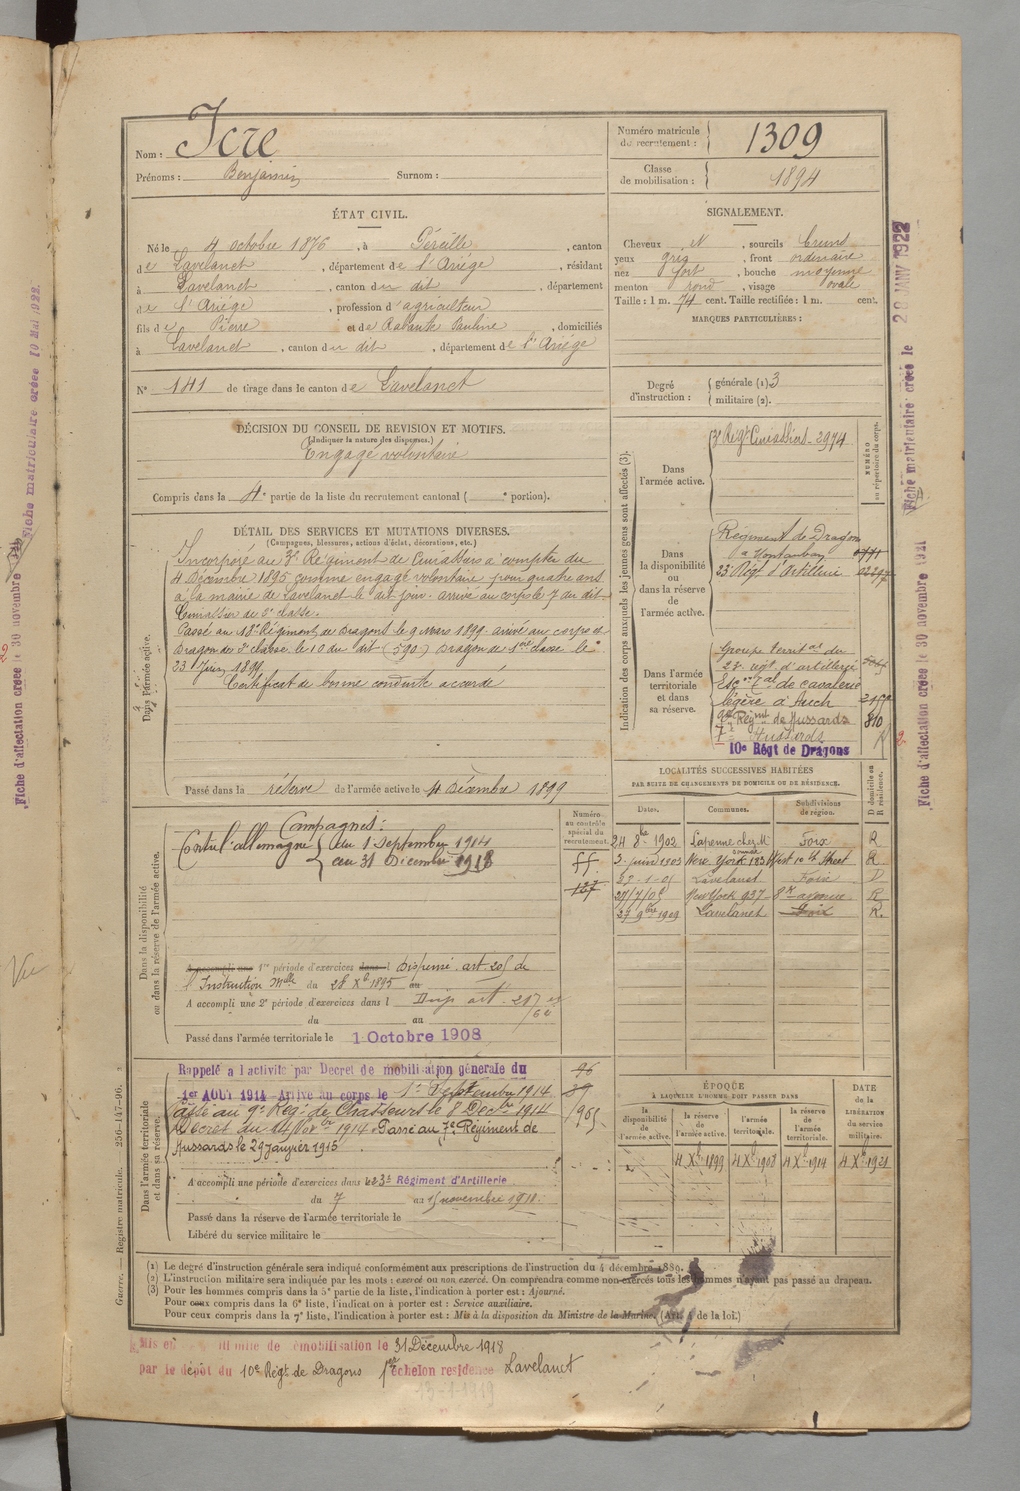 Nom : Icre
Prénoms : Benjamin Surnom :
Numéro matricule de recrutement : 1309
Classe de mobilisation : 1894
ÉTAT CIVIL.
Né le 4 octobre 1876, à Péreille, canton
de Lavelanet, département de l'Ariège, résidant
à Lavelanet, canton du dit, département
de l'Ariège, profession d'agriculteur
fils de Pierre et de Rabaute Pauline, domiciliés
à Lavelanet, canton du dit, département de l'Ariège
N° 141 de tirage dans le canton de Lavelanet
SIGNALEMENT.
Cheveux N, sourcils bruns
yeux gris, front ordinaire
nez fort, bouche moyenne
menton rond, visage ovale
Taille : 1 m. 74 cent. Taille rectifiée : 1 m. cent.
MARQUES PARTICULIÈRES :
Degré d'instruction : générale (1) 3
militaire (2).
DÉCISION DU CONSEIL DE REVISION ET MOTIFS.
(Indiquer la nature des dispenses.)
Engagé volontaire
Compris dans la 4e partie de la liste du recrutement cantonal ( e portion).
DÉTAIL DES SERVICES ET MUTATIONS DIVERSES.
(Campagnes, blessures, actions d'éclat, décorations, etc.)
Dans l'armée active.
Incorporé au 3e Régiment de Cuirassiers à compter du
4 Décembre 1895 comme engagé volontaire pour quatre ans
à la mairie de Lavelanet le dit jour. arrivé au corps le 7 du dit
Cuirassier de 2e classe.
Passé au 18e Régiment de Dragons le 9 mars 1899. arrivé au corps et
Dragon de 2e classe le 10 du dit (590) Dragon de 1ère classe le
23 Juin 1899.
Certificat de bonne conduite accordé
Passé dans la réserve de l'armée active le 4 Décembre 1899
Indication des corps auxquels les jeunes gens sont affectés (3).
NUMÉRO au répertoire du corps.
Dans l'armée active.
3e Régt Cuirassiers 2974
Dans la disponibilité ou dans la réserve de l'armée active.
Régiment de Dragons
à Montauban
23e Régt d'Artillerie
Dans l'armée territoriale et dans sa réserve.
Groupe territal du
23e régt d'artillerie
Escon Tal de cavalerie
légère à Auch
9e Régmt de Hussards 810
7e Hussards
10e Régt de Dragons
LOCALITÉS SUCCESSIVES HABITÉES
PAR SUITE DE CHANGEMENTS DE DOMICILE OU DE RÉSIDENCE.
Dates. Communes. Subdivisions de région. D domicile ou R résidence.
24 8bre 1902 Lapenne chez Mr Foix R
3 juin 1903 New York West 10th Street R
Lavelanet Foix D
27/7/05 New York 937 8e avenue R
27 9bre 1909 Lavelanet Foix R.
Numéro au contrôle spécial du recrutement.
127
Dans la disponibilité ou dans la réserve de l'armée active.
Campagnes :
Contre l'allemagne du 1 Septembre 1914
au 31 Décembre 1918
A accompli une 1re période d'exercices dans l Dispensé art. 205 de
l'Instruction Mlle du 28 Xbre 1895 au
A accompli une 2e période d'exercices dans l
du au
Passé dans l'armée territoriale le 1 Octobre 1908
Dans l'armée territoriale et dans sa réserve.
Rappelé à l'activité par Decret de mobilisation générale du
1er AOUT 1914 Arrivé au corps le 1er Septembre 1914
Passé au 9e Rég. de Chasseurs le 8 Décbre 1914
Décret du 14 Novbre 1914. Passé au 7e Régiment de
Hussards le 29 Janvier 1915
A accompli une période d'exercices dans le 23e Régiment d'Artillerie
du 7 au 15 novembre 1910.
Passé dans la réserve de l'armée territoriale le
Libéré du service militaire le
ÉPOQUE
À LAQUELLE L'HOMME DOIT PASSER DANS
la disponibilité de l'armée active. la réserve de l'armée active. l'armée territoriale. la réserve de l'armée territoriale.
DATE de la LIBÉRATION du service militaire.
4 Xbre 1899 4 Xbre 1908 4 Xbre 1914 4 Xbre 1921
(1) Le degré d'instruction générale sera indiqué conformément aux prescriptions de l'instruction du 4 décembre 1889.
(2) L'instruction militaire sera indiquée par les mots : exercé ou non exercé. On comprendra comme non exercés tous les hommes n'ayant pas passé au drapeau.
(3) Pour les hommes compris dans la 5e partie de la liste, l'indication à porter est : Ajourné.
Pour ceux compris dans la 6e liste, l'indication à porter est : Service auxiliaire.
Pour ceux compris dans la 7e liste, l'indication à porter est : Mis à la disposition du Ministre de la Marine. (Art. 4 de la loi.)
Mis en de démobilisation le 31 Décembre 1918
par le dépôt du 10e Régt de Dragons 1er échelon résidence Lavelanet
Guerre. — Registre matricule. — 256-147-96.
Fiche matriculaire créée le 20 JANV 1922
Fiche d'affectation créée le 30 novembre 1921
Fiche matriculaire créée 10 Mai 1922.
Fiche d'affectation créée le 30 novembre
Vu